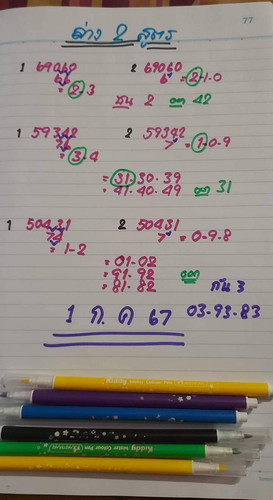 77
ล่าง 2 สูตร
1 69060 2 69060
66 6 = 2-1-0
= 2-3
ชน 2 ออก 42
1 59342 2 59342
76 7 = 1-0-9
= 3-4
= 31-30-39
= 41-40-49 ออก 31
1 50431 2 50431
74 7 = 0-9-8
= 1-2
= 01-02
= 91-92 ออก
= 81-82 กัน 3
1 ก.ค 67 03-93-83
Kiddy
Water Colour Pen